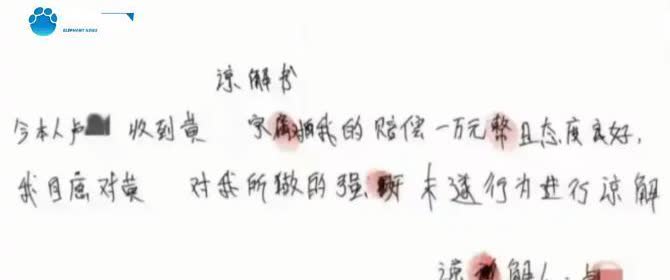 ELEPHANT NEWS
谅解书
今本人卢 收到黄 家属 我的赔偿一万元整且态度良好,
我自愿对黄 对我所做的强 未遂行为进行谅解
谅解人:卢